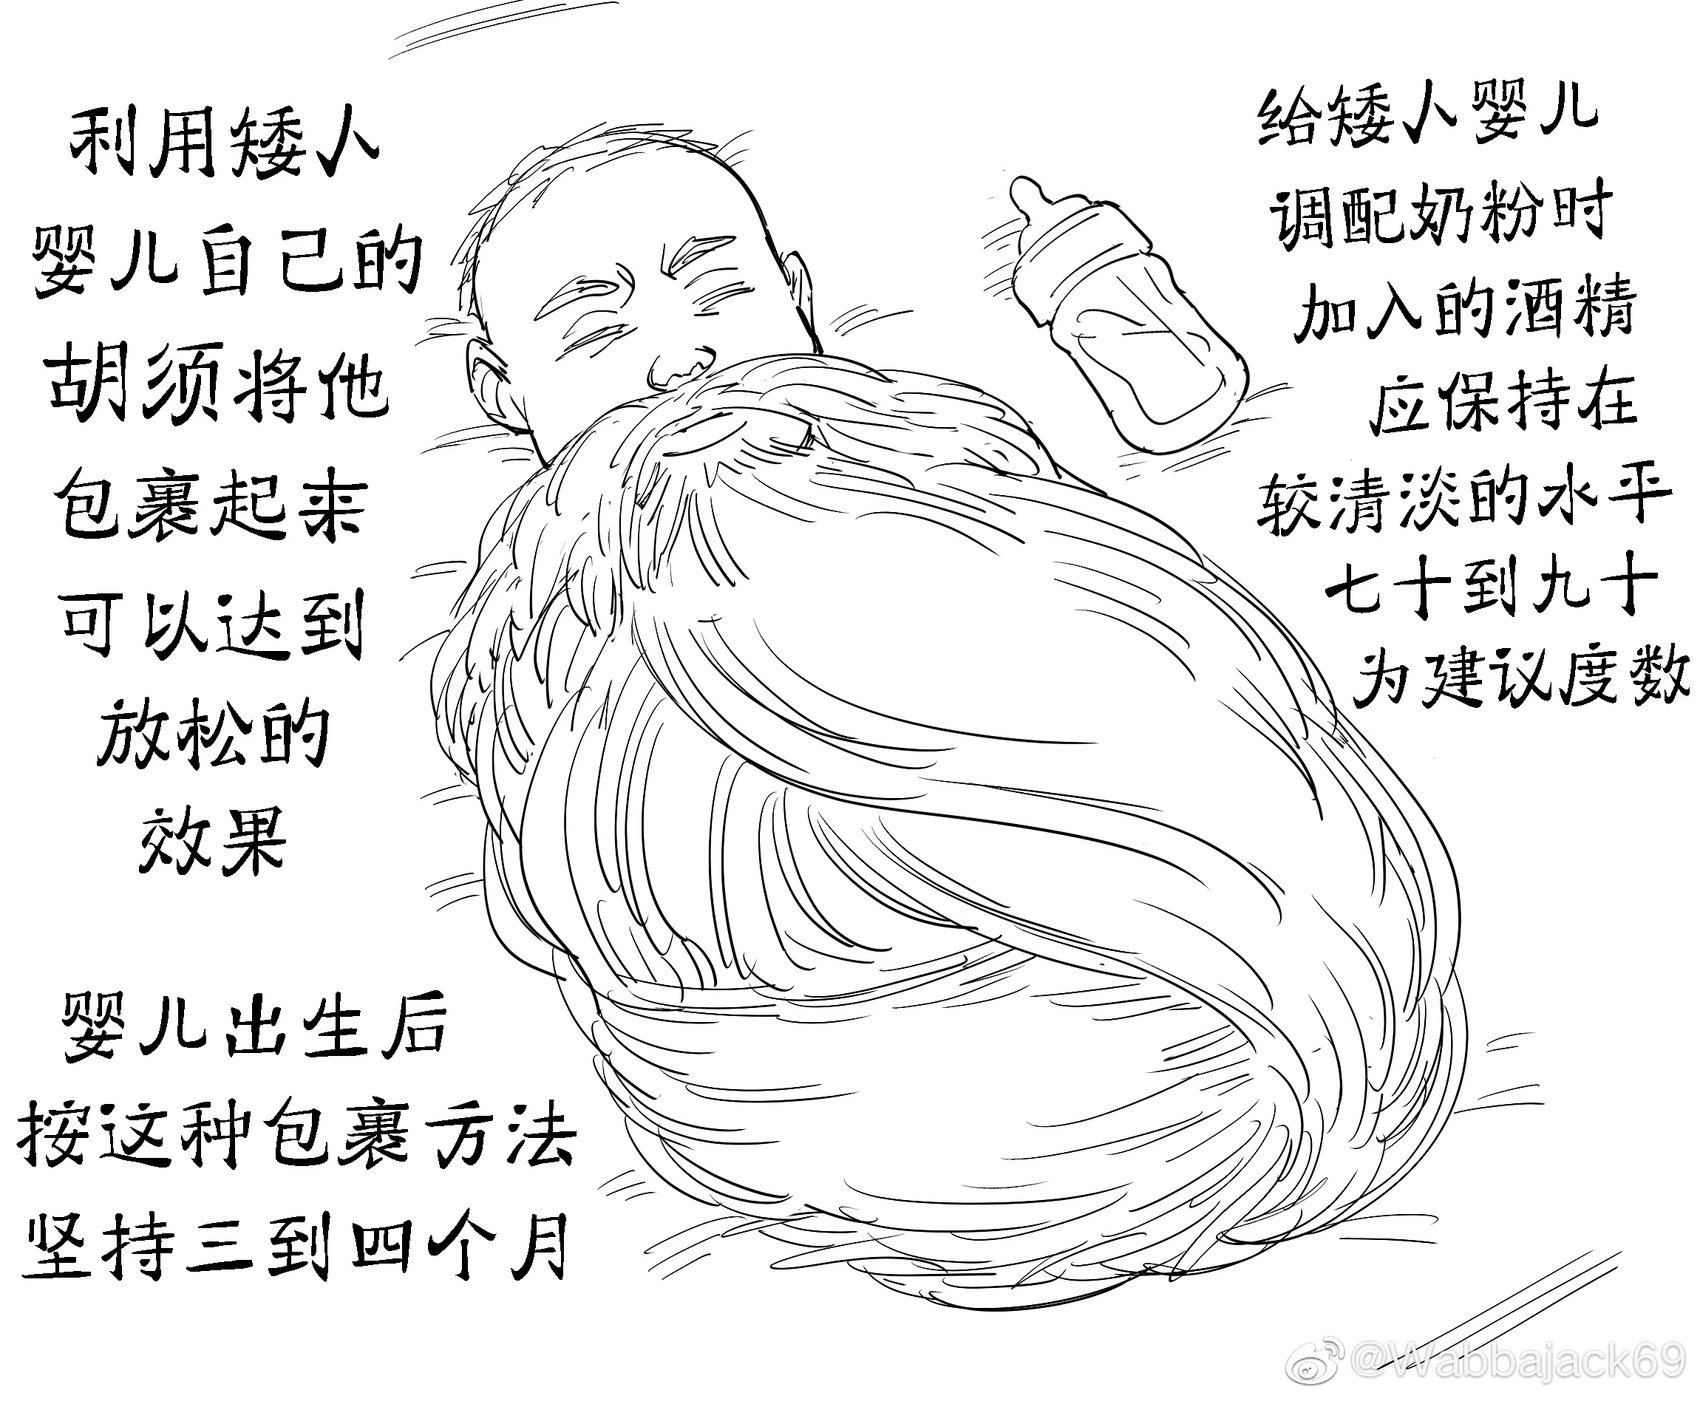 利用矮人
婴儿自己的
胡须将他
包裹起来
可以达到
放松的
效果
婴儿出生后
按这种包裹方法
坚持三到四个月
给矮人婴儿
调配奶粉时
加入的酒精
应保持在
较清淡的水平
七十到九十
为建议度数
@Wabbajack69